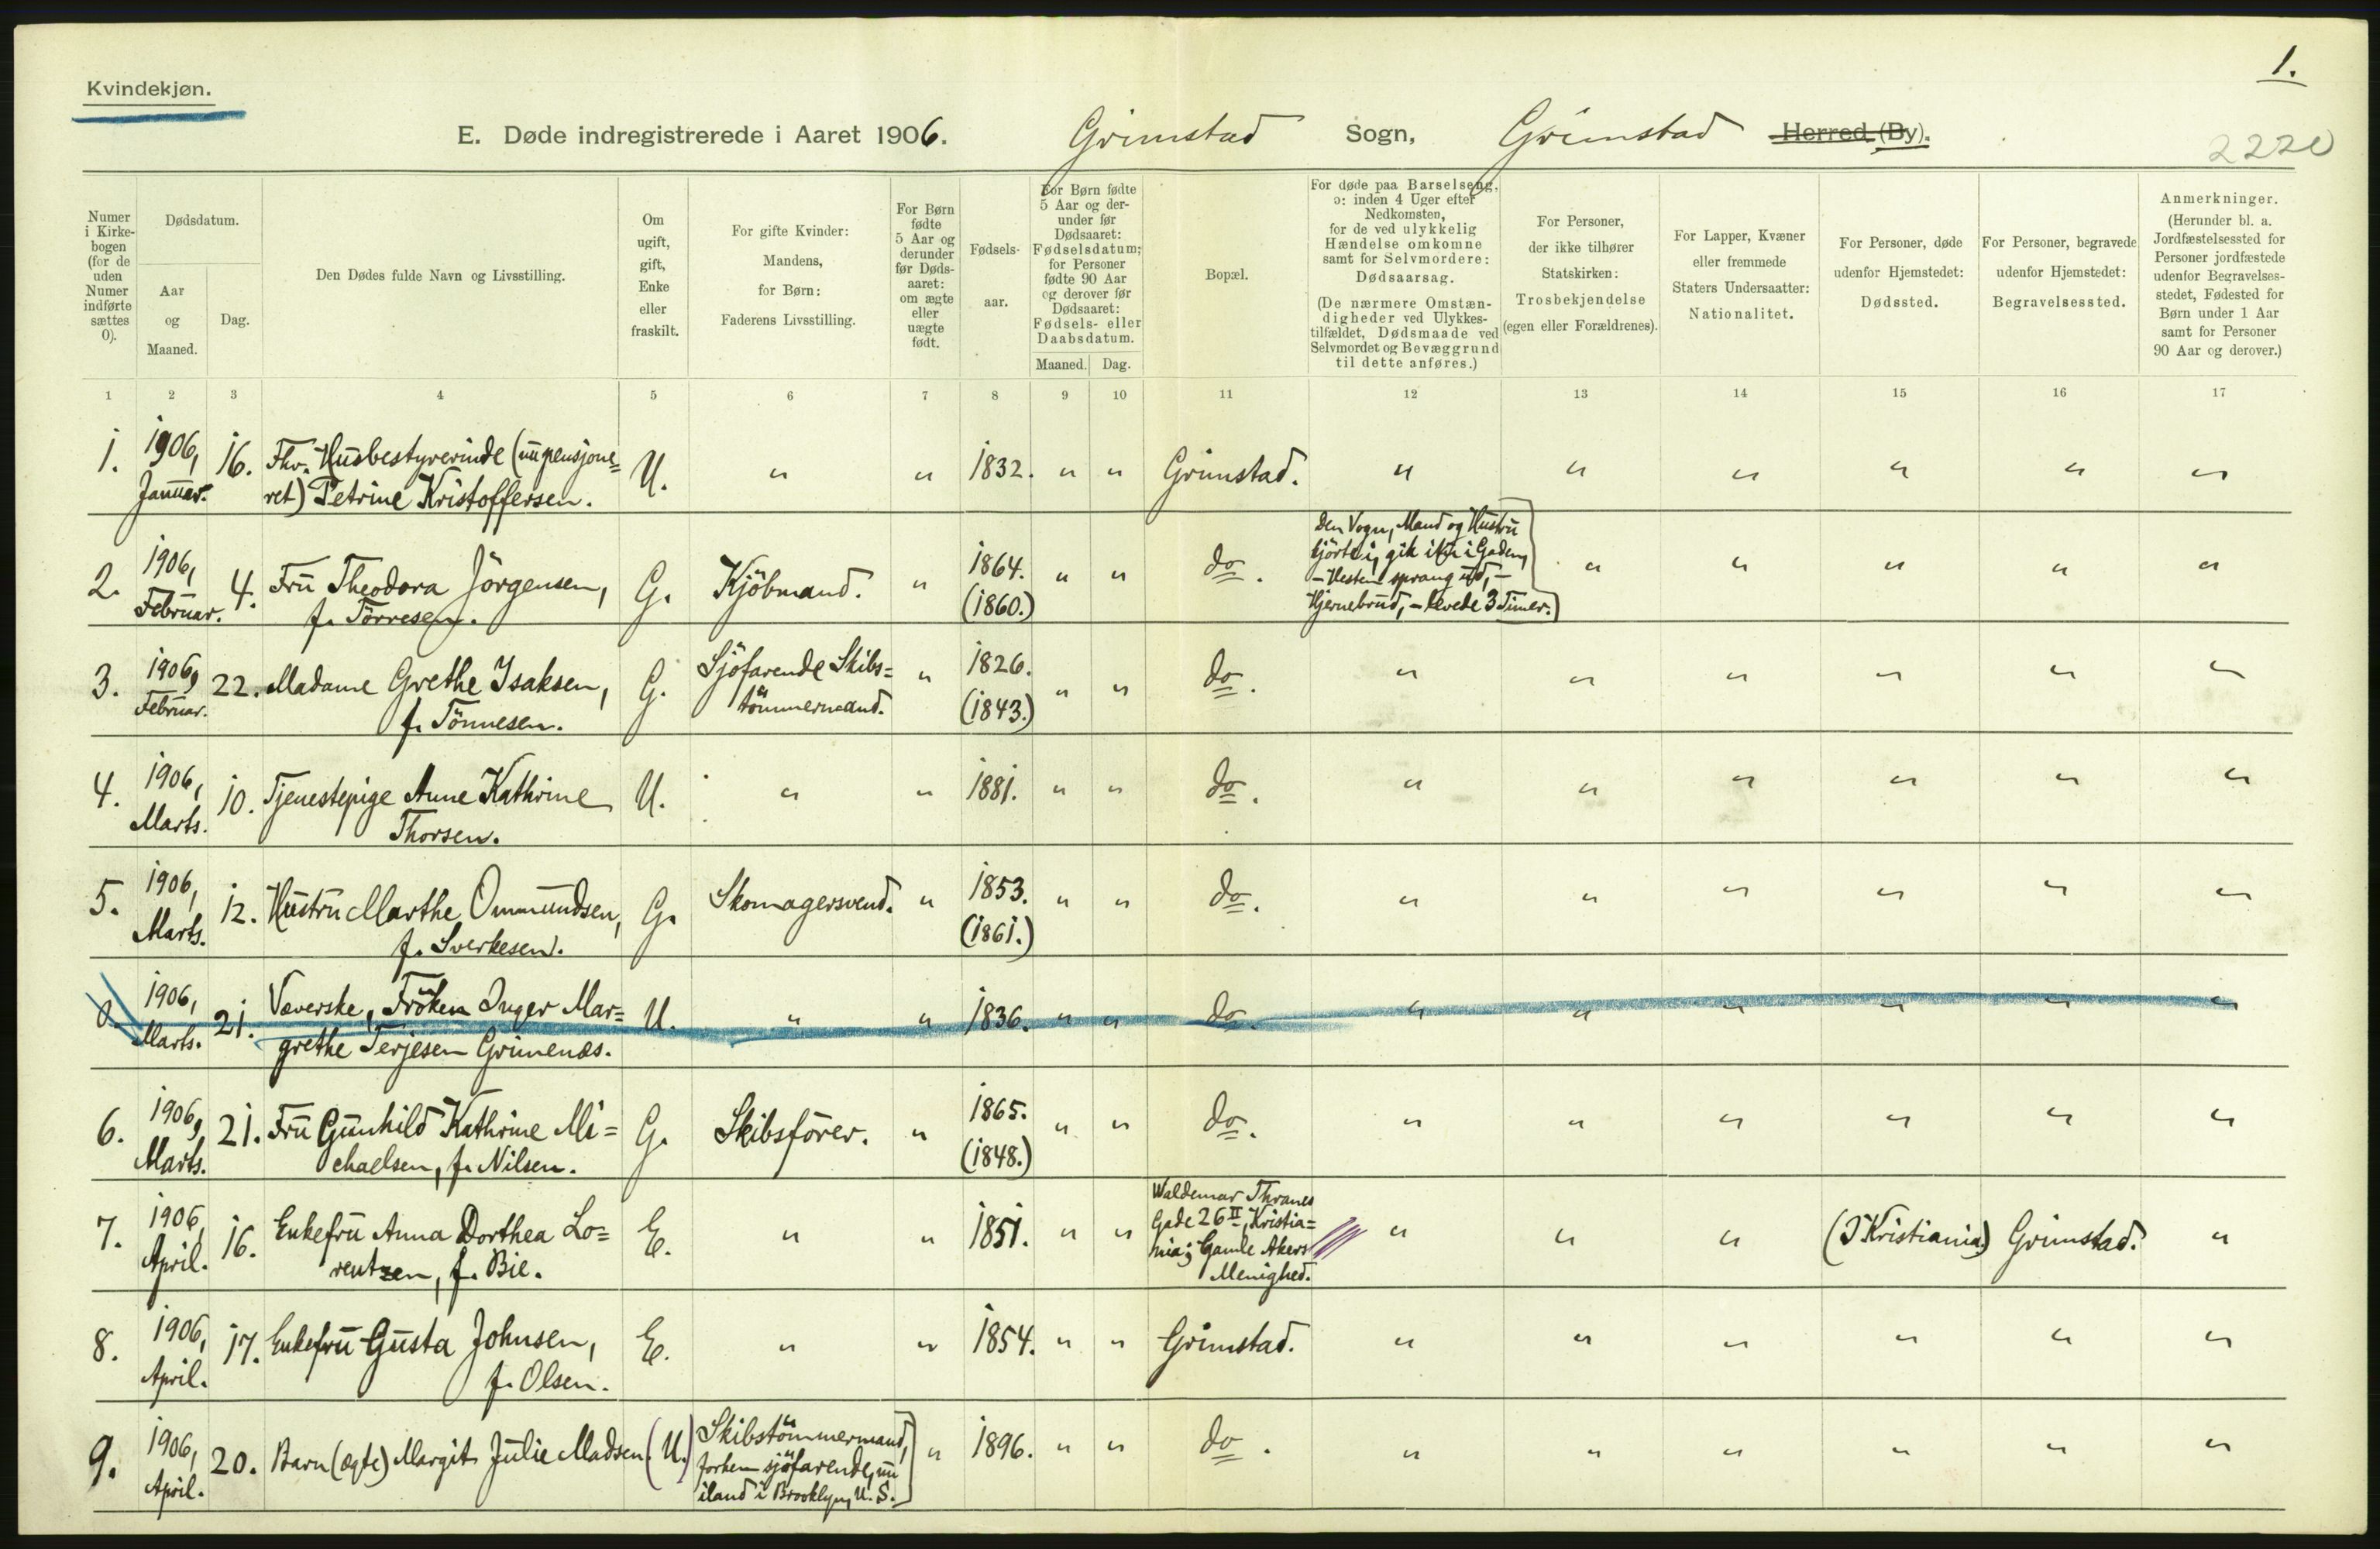 1.
Kvindekjøn.
E. Døde indregistrerede i Aaret 1906. Grimstad Sogn, Grimstad Herred (By).
2220
Numer i Kirkebogen (for de uden Numer indførte sættes 0).
Dødsdatum.
Aar og Maaned.
Dag.
Den Dødes fulde Navn og Livsstilling.
Om ugift, gift, Enke eller fraskilt.
For gifte Kvinder: Mandens, for Børn: Faderens Livsstilling.
For Børn fødte 5 Aar og derunder før Dødsaaret: om ægte eller uægte født.
Fødselsaar.
For Børn fødte 5 Aar og derunder før Dødsaaret: Fødselsdatum; for Personer fødte 90 Aar og derover før Dødsaaret: Fødsels- eller Daabsdatum.
Maaned. Dag.
Bopæl.
For døde paa Barselseng, ɔ: inden 4 Uger efter Nedkomsten, for de ved ulykkelig Hændelse omkomne samt for Selvmordere: Dødsaarsag.
(De nærmere Omstændigheder ved Ulykkestilfældet, Dødsmaade ved Selvmordet og Bevæggrund til dette anføres.)
For Personer, der ikke tilhører Statskirken: Trosbekjendelse (egen eller Forældrenes).
For Lapper, Kvæner eller fremmede Staters Undersaatter: Nationalitet.
For Personer, døde udenfor Hjemstedet: Dødssted.
For Personer, begravede udenfor Hjemstedet: Begravelsessted.
Anmerkninger.
(Herunder bl. a. Jordfæstelsessted for Personer jordfæstede udenfor Begravelsesstedet, Fødested for Børn under 1 Aar samt for Personer 90 Aar og derover.)
1 2 3 4 5 6 7 8 9 10 11 12 13 14 15 16 17
1. 1906, Januar. 16. Fhv. Husbestyrerinde (nu pensjone=
ret) Petrine Kristoffersen. U. " " 1832. " " Grimstad. " " " " " "
2. 1906, Februar. 4. Fru Theodora Jörgensen,
f. Törresen. G. Kjöbmand. " 1864. (1860.) " " do.
Den Vogn, Mand og Hustru
kjörte i, gik itu i Gaden,
– Hesten sprang ud, –
Hjernebrud, – levede 3 Timer. " " " " "
3. 1906, Februar. 22. Madame Grethe Isaksen,
f. Tönnesen. G. Sjöfarende Skibs=
tömmermand. " 1826. (1843.) " " do. " " " " " "
4. 1906, Marts. 10. Tjenestepige Anne Kathrine
Thorsen. U. " " 1881. " " do. " " " " " "
5. 1906, Marts. 12. Hustru Marthe Ommundsen,
f. Sverkesen. G. Skomagersvend. " 1853. (1861.) " " do. " " " " " "
0. 1906, Marts. 21. Væverske, Fröken Inger Mar=
grethe Terjesen Grimenæs. U. " " 1836. " " do. " " " " " "
6. 1906, Marts. 21. Fru Gunhild Kathrine Mi=
chaelsen, f. Nilsen. G. Skibsförer. " 1865. (1848.) " " do. " " " " " "
7. 1906, April. 16. Enkefru Anna Dorthea Lo=
rentzen, f. Bie. E. " " 1851. " "
Waldemar Thranes
Gade 26 II, Kristia=
nia; Gamle Akers
Menighed. " " " (I Kristiania.) Grimstad. "
8. 1906, April. 17. Enkefru Gusta Johnsen,
f. Olsen. E. " " 1854. " " Grimstad. " " " " " "
9. 1906, April. 20. Barn (ægte) Margit Julie Madsen. (U.)
Skibstömmermand,
forhen sjöfarende, nu
iland i Brooklyn, U. S. " 1896. " " do. " " " " " "